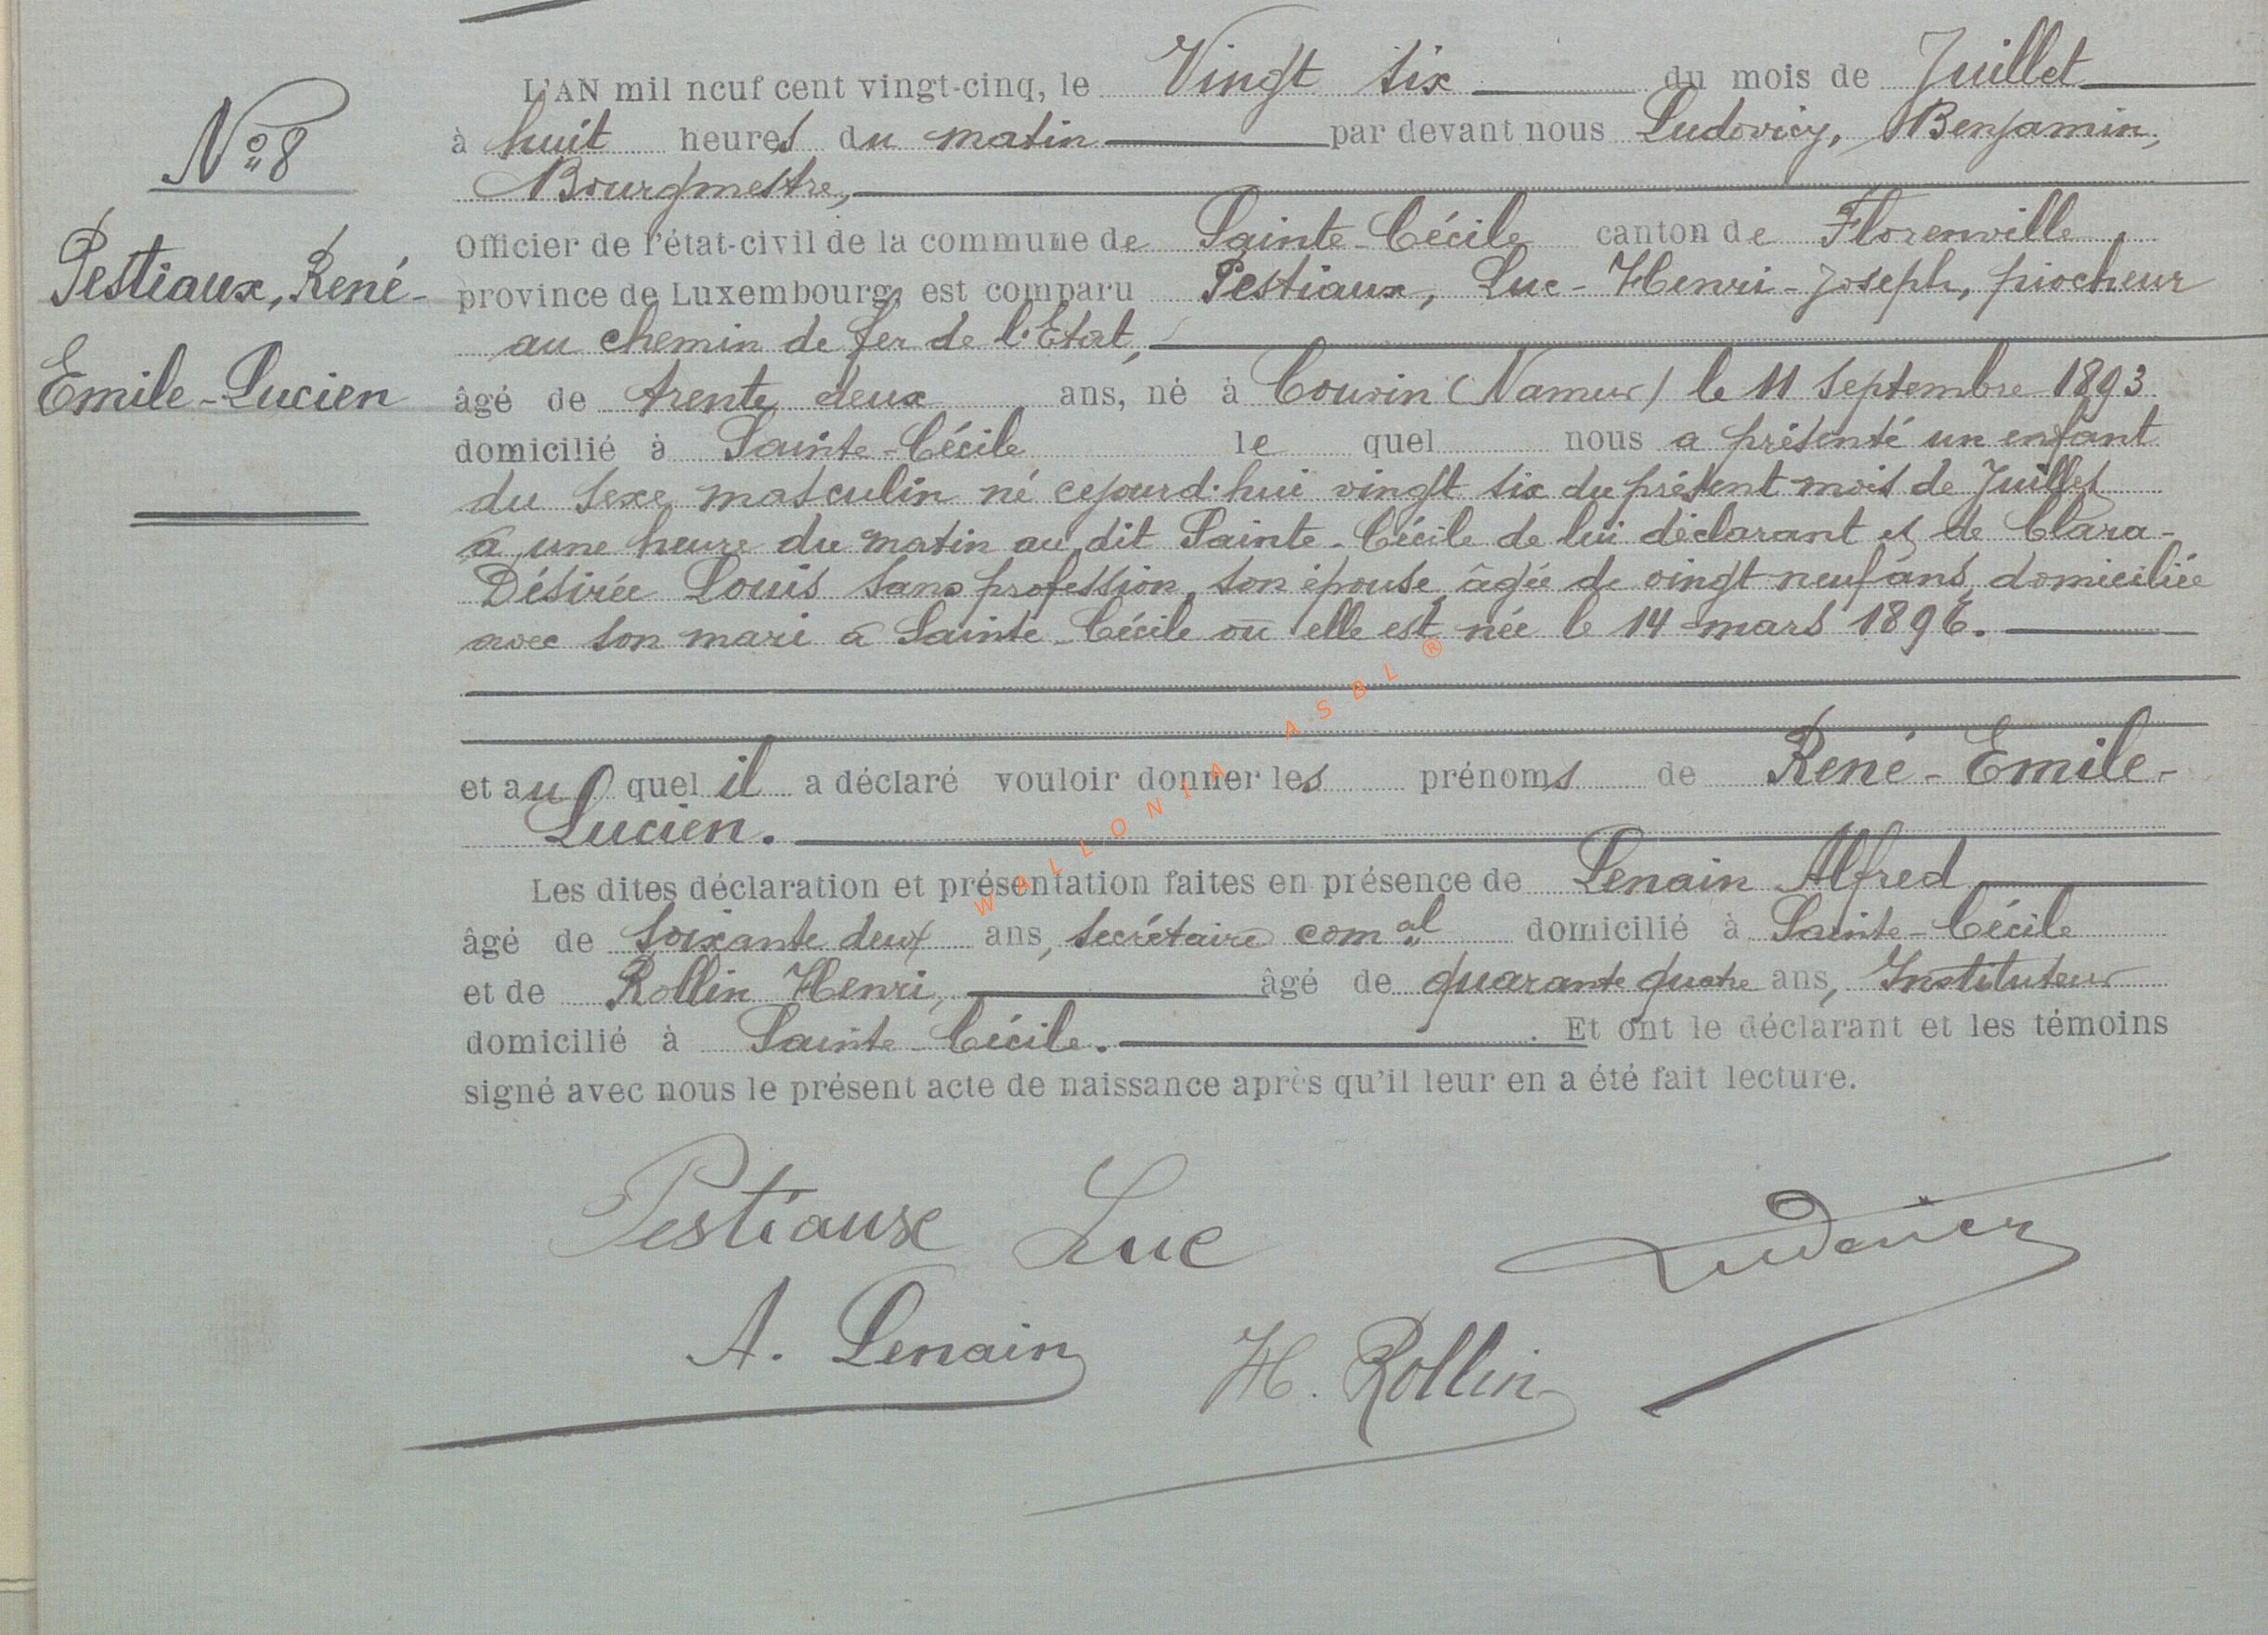 N° 8
Pestiaux, René-
Emile-Lucien
L'AN mil neuf cent vingt-cinq, le Vingt six du mois de Juillet
à huit heures du matin par devant nous Ludovicy, Benjamin,
Bourgmestre,
Officier de l'état-civil de la commune de Sainte-Cécile canton de Florenville,
province de Luxembourg, est comparu Pestiaux, Luc-Henri-Joseph, piocheur
au chemin de fer de l'Etat,
âgé de trente deux ans, né à Couvin (Namur) le 11 septembre 1893
domicilié à Sainte-Cécile le quel nous a présenté un enfant
du sexe masculin né cejourd'hui vingt six du présent mois de Juillet
à une heure du matin au dit Sainte-Cécile de lui déclarant et de Clara-
Désirée Louis sans profession, son épouse, âgée de vingt neuf ans, domiciliée
avec son mari à Sainte-Cécile où elle est née le 14 mars 1896.
et au quel il a déclaré vouloir donner les prénoms de René-Emile-
Lucien.
Les dites déclaration et présentation faites en présence de Lenain Alfred
âgé de soixante deux ans, secrétaire comal domicilié à Sainte-Cécile
et de Rollin Henri, âgé de quarante quatre ans, Instituteur
domicilié à Sainte-Cécile. Et ont le déclarant et les témoins
signé avec nous le présent acte de naissance après qu'il leur en a été fait lecture.
Pestiaux Luc
Ludovicy
A. Lenain
H. Rollin
WALLONIA ASBL ®